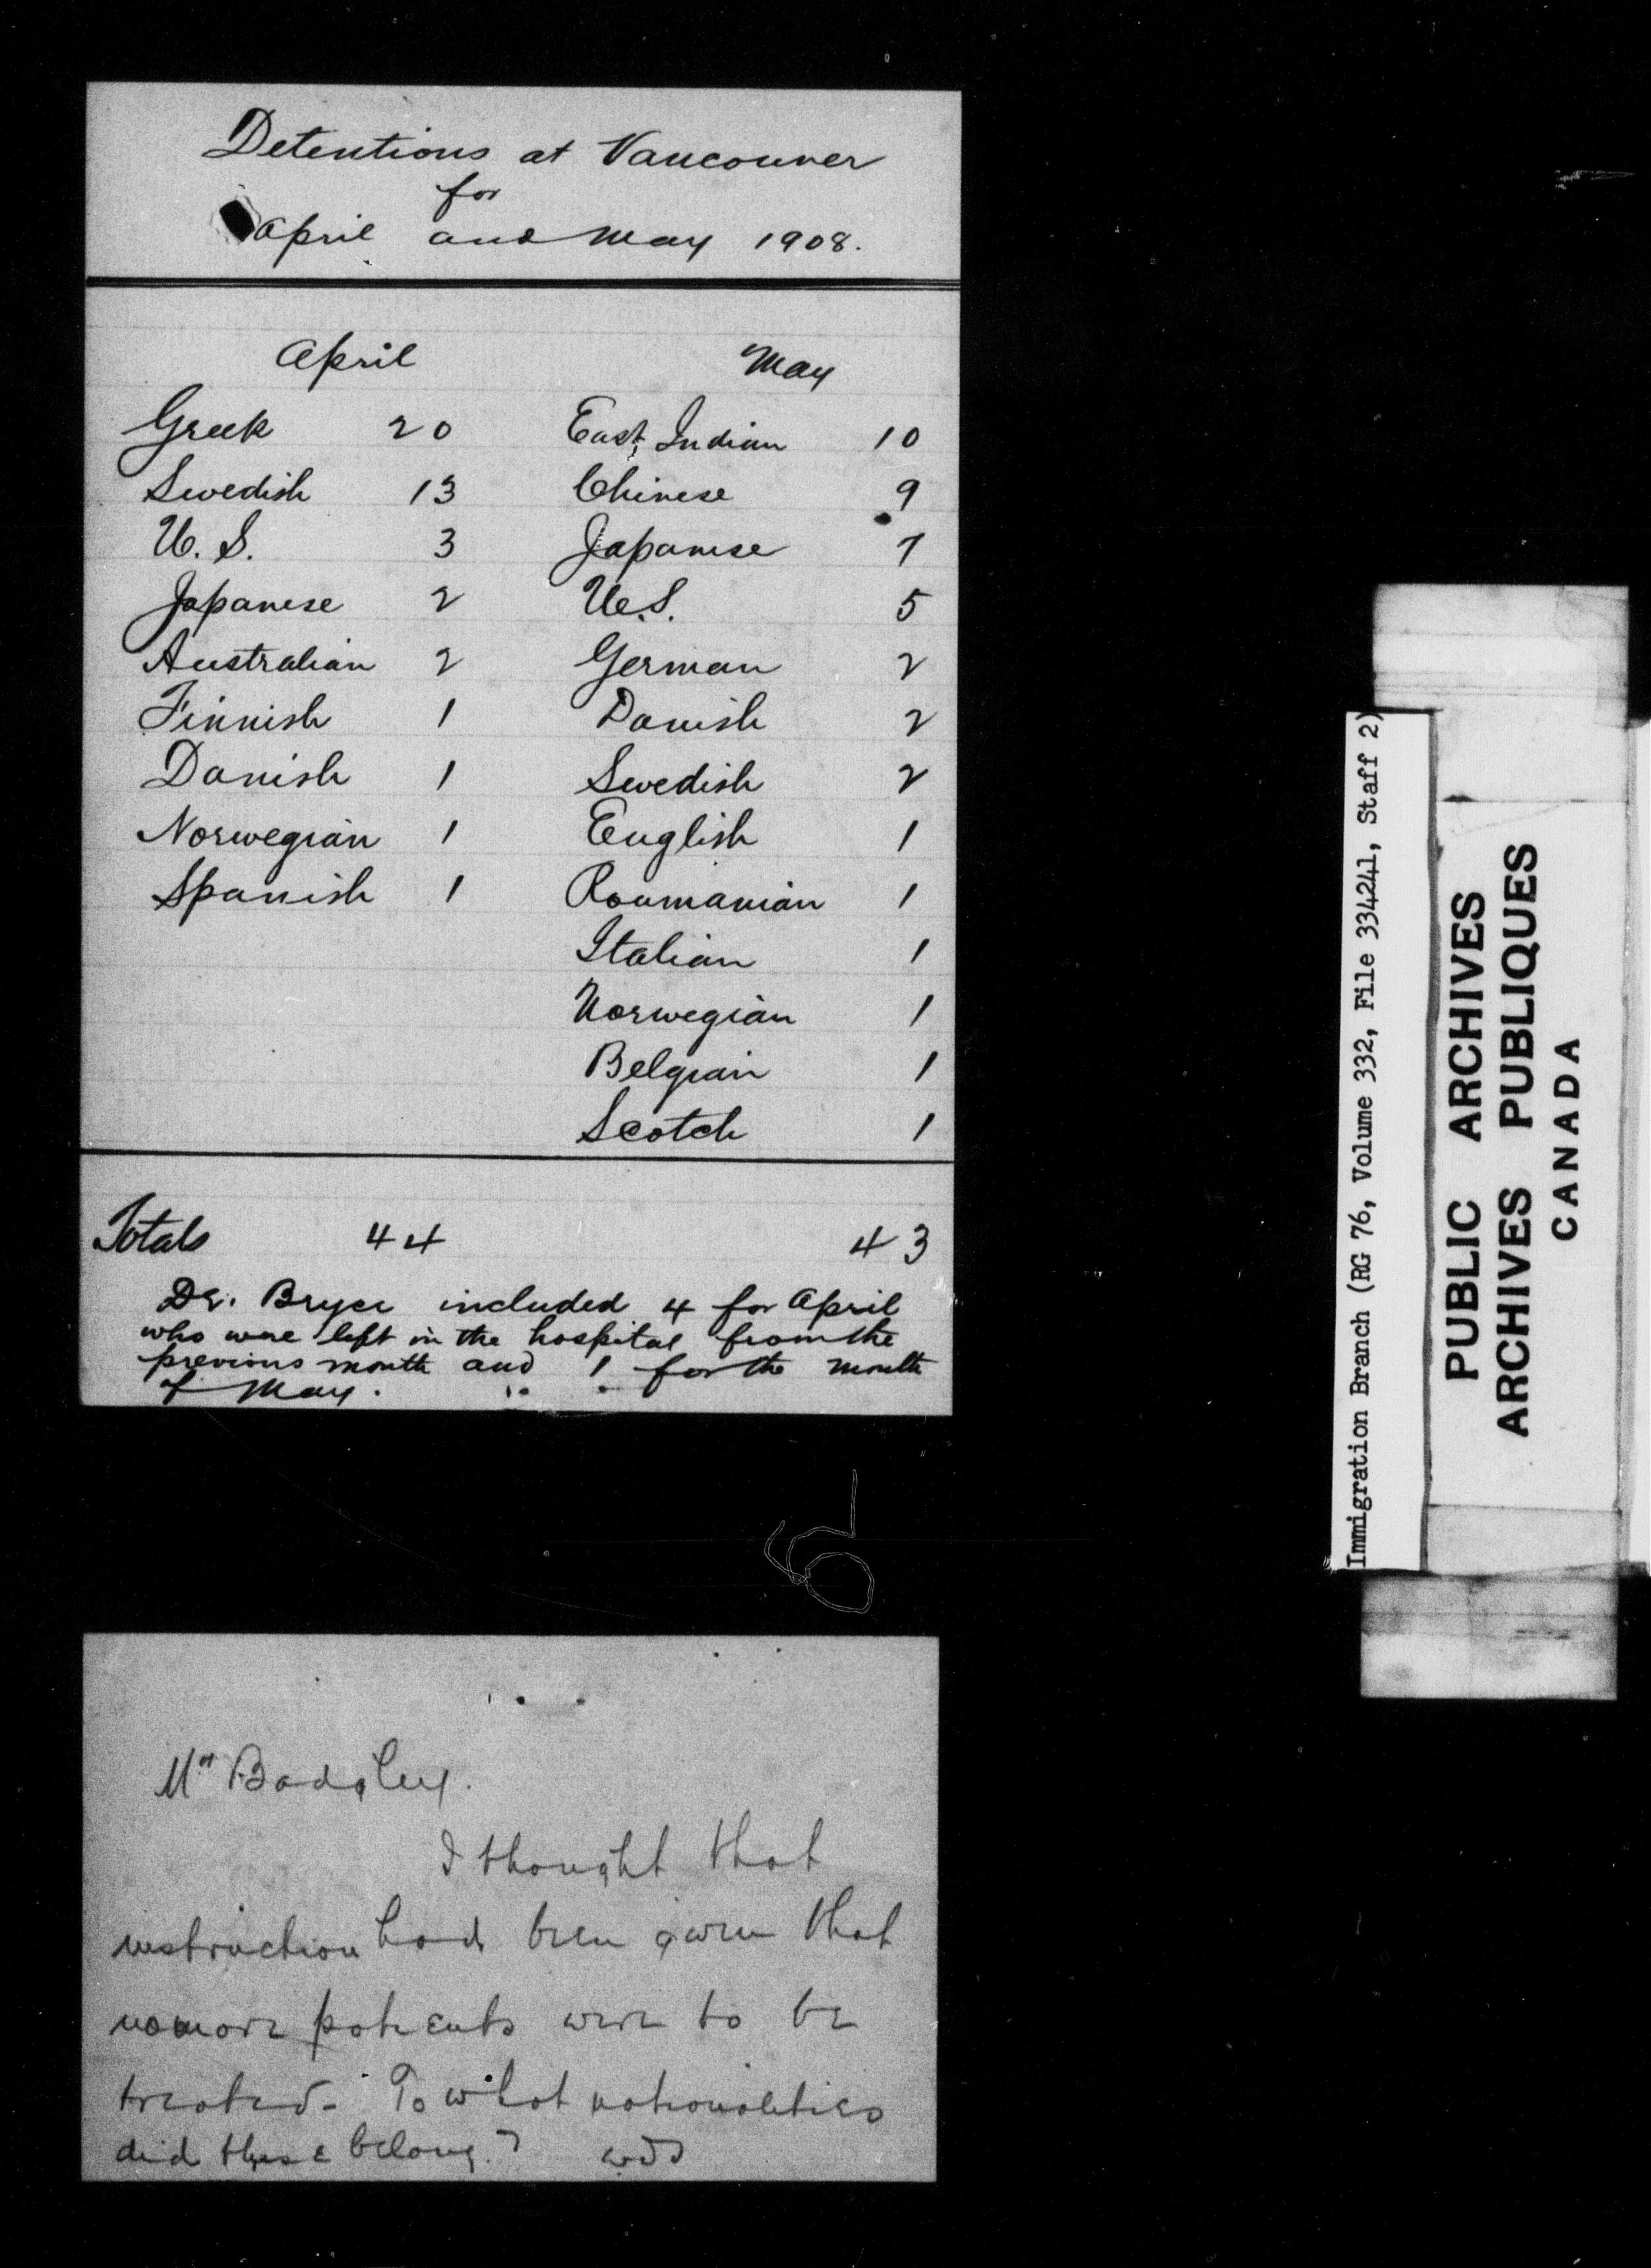 Detentions at Vancouver
for
April and May 1908.
April May
Greek 20 East Indian 10
Swedish 13 Chinese 9
U.S. 3 Japanese 7
Japanese 2 U.S. 5
Australian 2 German 2
Finnish 1 Danish 2
Danish 1 Swedish 2
Norwegian 1 English 1
Spanish 1 Roumanian 1
Italian 1
Norwegian 1
Belgian 1
Scotch 1
Totals 44 43
Dr. Bryce included 4 for April
who were left in the hospital from the
previous month and 1 for the month
of May.
Mr Badgley.
I thought that
instruction had been given that
no more patients were to be
treated. To what nationalities
did these belong? WDS
Immigration Branch (RG 76, Volume 332, File 334241, Staff 2)
PUBLIC ARCHIVES
ARCHIVES PUBLIQUES
CANADA